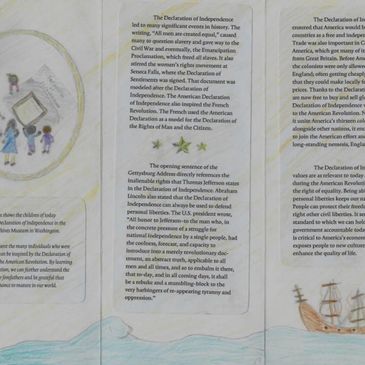 shows the children of today
Declaration of Independence in the
hives Museum in Washington.
sent the many individuals who were
can be inspired by the Declaration of
the American Revolution. By learning
ation, we can further understand the
r forefathers and be grateful that
inues to mature in our world.
The Declaration of Independence
led to many significant events in history. The
writing, "All men are created equal," caused
many to question slavery and gave way to the
Civil War and eventually, the Emancipation
Proclamation, which freed all slaves. It also
stirred the women's rights movement at
Seneca Falls, where the Declaration of
Sentiments was signed. That document was
modeled after the Declaration of
Independence. The American Declaration
of Independence also inspired the French
Revolution. The French used the American
Declaration as a model for the Declaration of
the Rights of Man and the Citizen.
The opening sentence of the
Gettysburg Address directly references the
inalienable rights that Thomas Jefferson states
in the Declaration of Independence. Abraham
Lincoln also stated that the Declaration of
Independence can always be used to defend
personal liberties. The U.S. president wrote,
"All honor to Jefferson-to the man who, in
the concrete pressure of a struggle for
national independence by a single people, had
the coolness, forecast, and capacity to
introduce into a merely revolutionary doc-
ument, an abstract truth, applicable to all
men and all times, and so to embalm it there,
that to-day, and in all coming days, it shall
be a rebuke and a stumbling-block to the
very harbingers of re-appearing tyranny and
oppression."
The Declaration of Ind
ensured that America would b
countries as a free and indepen
Trade was also important in C
America, which got many of it
from Great Britain. Before Am
the colonies were only allowe
England, often getting cheaply
that they could make locally fo
prices. Thanks to the Declarati
are now free to buy and sell glo
Declaration of Independence w
to the American Revolution. N
it unite America's thirteen colo
alongside other nations, it enc
to join the American effort ag
long-standing nemesis, Englan
The Declaration of In
values are as relevant to today
during the American Revoluti
the right of equality. Being abl
personal liberties keeps our na
People can protect their freedo
right other civil liberties. It ser
standard to which we can hold
government accountable toda
is critical to America's econom
exposes people to new culture
enhance the quality of life.